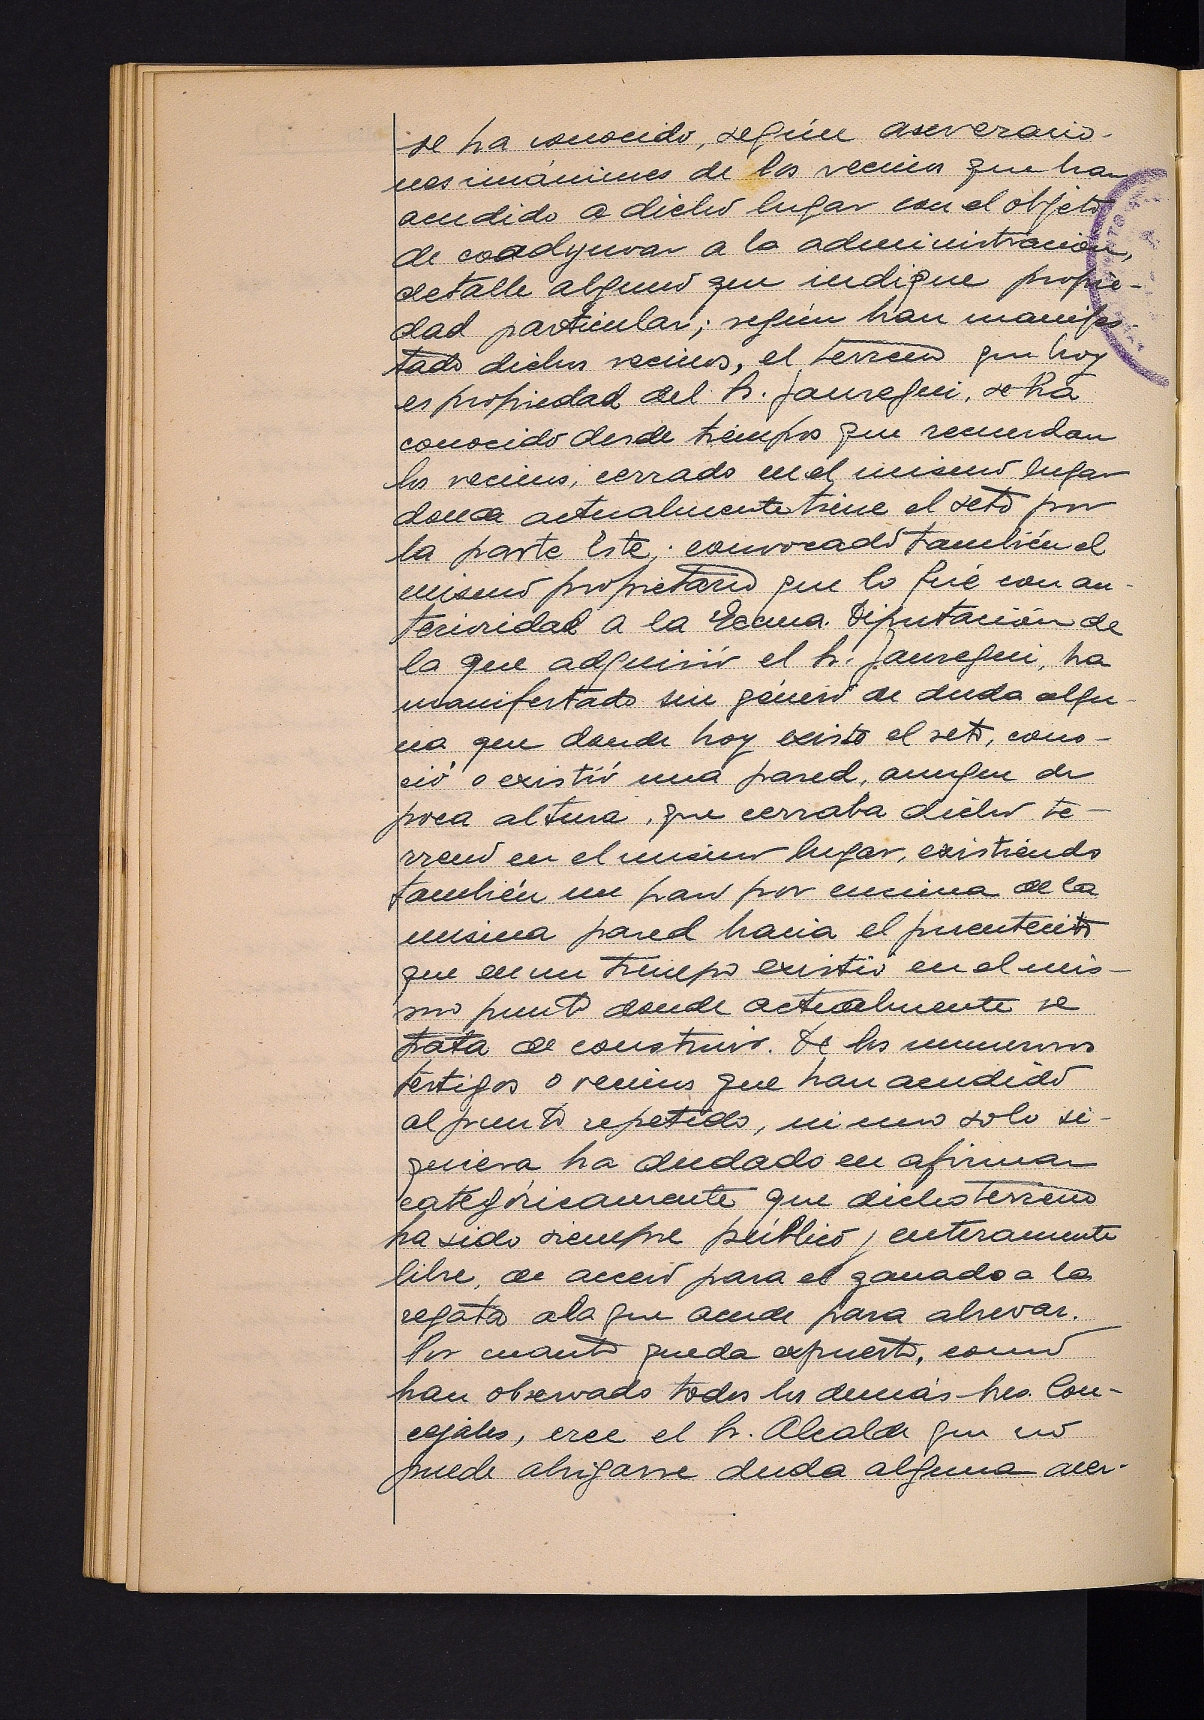 se ha conocido, según aseveracio-
nes unánimes de los vecinos que han
acudido a dicho lugar con el objeto
de coadyuvar a la administración,
detalle alguno que indique propie-
dad particular; según han manifes-
tado dichos vecinos, el terreno que hoy
es propiedad del Sr. Jauregui, se ha
conocido desde tiempos que recuerdan
los vecinos, cerrado en el mismo lugar
donde actualmente tiene el seto por
la parte Este; convocado también el
mismo propietario que lo fué con an-
terioridad a la Excma. Diputación de
la que adquirió el Sr. Jauregui, ha
manifestado sin género de duda algu-
na que donde hoy existe el seto, cono-
ció o existió una pared, aunque de
poca altura, que cerraba dicho te-
rreno en el mismo lugar, existiendo
también un paso por encima de la
misma pared hacia el puentecito
que en un tiempo existió en el mis-
mo punto donde actualmente se
trata de construir. De los numerosos
testigos o vecinos que han acudido
al punto repetido, ni uno solo si-
quiera ha dudado en afirmar
categóricamente que dicho terreno
ha sido siempre público y enteramente
libre, de acceso para el ganado a la
regata a la que acude para abrevar.
Por cuanto queda expuesto, como
han observado todos los demás Sres. Con-
cejales, cree el Sr. Alcalde que no
puede abrigarse duda alguna acer-